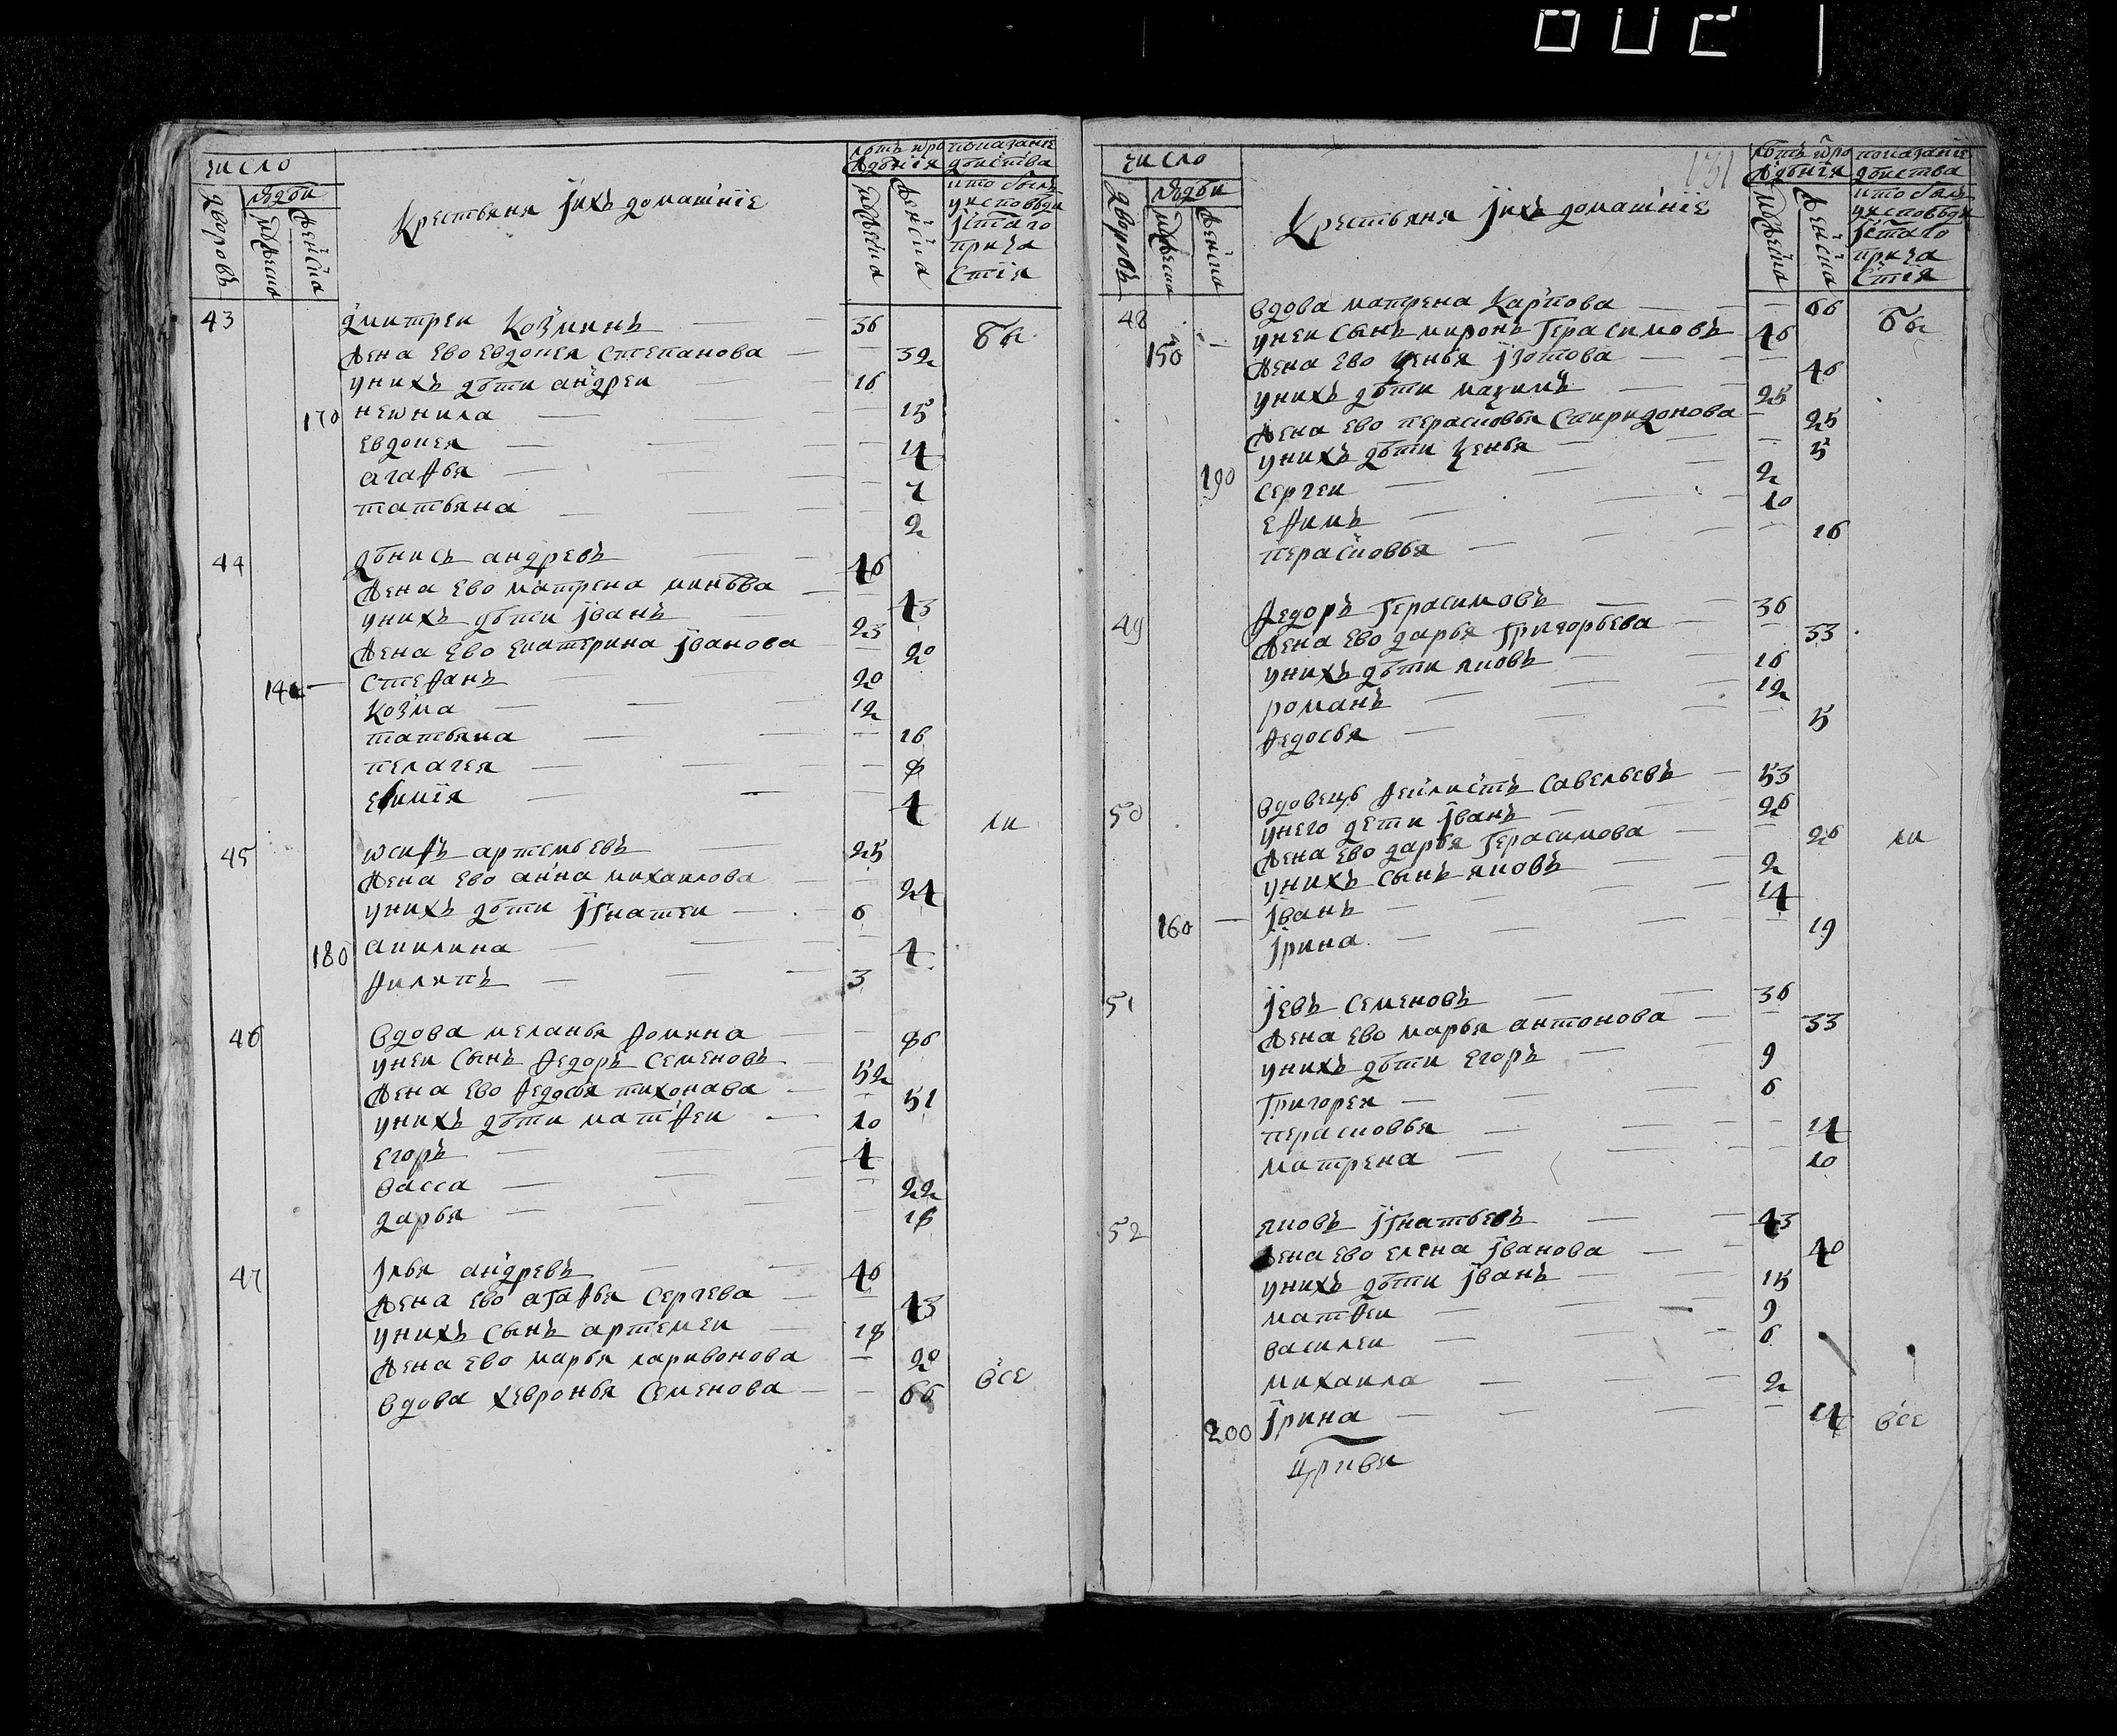 число
дворовъ
людеи
мужеска
женска
Крестьяня їихъ домашнїе
лѣтъ ѿро
жденїя
мужеска
женска
показанїе
дѣиства
кто былъ
уисповѣди
їстаго
прича
стїя
43 дмитреи Козминъ — 36 бы
жена ево евдокея степанова — 32
унихъ дѣти андреи — 16
170 неѡнила — 15
евдокея — 14
агафья — 7
татьяна — 2
44 дѣнисъ андревъ — 46
жена ево матрена минѣва — 43
унихъ дѣти їванъ — 23
жена ево екатерина їванова — 20
стефанъ — 20
козма — 12
татьяна — 16
пелагея — 8
ефимїя — 4
ли
45 ѡсифъ артемьевъ — 25
жена ево анна михаилова — 24
унихъ дѣти їгнатеи — 6
180 акилина — 4
филипъ — 3
46 вдова меланья фомина — 86
унеи сынъ федоръ семеновъ 52
жена ево федосья тихонава — 51
унихъ дѣти матфеи — 10
егоръ — 4
васса — 22
дарья — 18
47 їлья андревъ — 46
жена ево агафья сергева — 43
унихъ сынъ артемеи — 18
жена ево марья ларивонова — 20
вдова хевронья семенова — 66 все
131
число
дворовъ
людеи
мужеска
женска
Крестьяня їихъ домашнїе
лѣтъ ѿро
жденїя
мужеска
женска
показанїе
дѣиства
кто былъ
уисповѣди
їстаго
прича
стїя
48 вдова матрена Карпова — 66 бы
унеи сынъ миронъ герасимовъ 46
150 жена ево ѯенья їзотова — 46
унихъ дѣти маѯимъ — 25
жена ево перасковья спиридонова — 25
унихъ дѣти ѯенья — 5
190 сергеи — 2
ефимъ — 10
перасковья — 16
49 федоръ герасимовъ — 36
жена ево дарья григорьева — 33
унихъ дѣти яковъ — 16
романъ — 12
федосья — 5
50 вдовецъ феклистъ савельевъ — 53
унего дети їванъ — 26
жена ево дарья герасимова — 26 ли
унихъ сынъ яковъ — 2
160 — їванъ — 14
їрина — 19
51 їевъ семеновъ — 36
жена ево марья антонова — 33
унихъ дѣти егоръ — 9
григореи — 6
перасковья — 14
матрена — 10
52 яковъ їгнатьевъ — 43
жена ево елена їванова — 40
унихъ дѣти їванъ — 15
матфеи — 9
василеи — 6
михаила — 2
200 їрина — 14 все